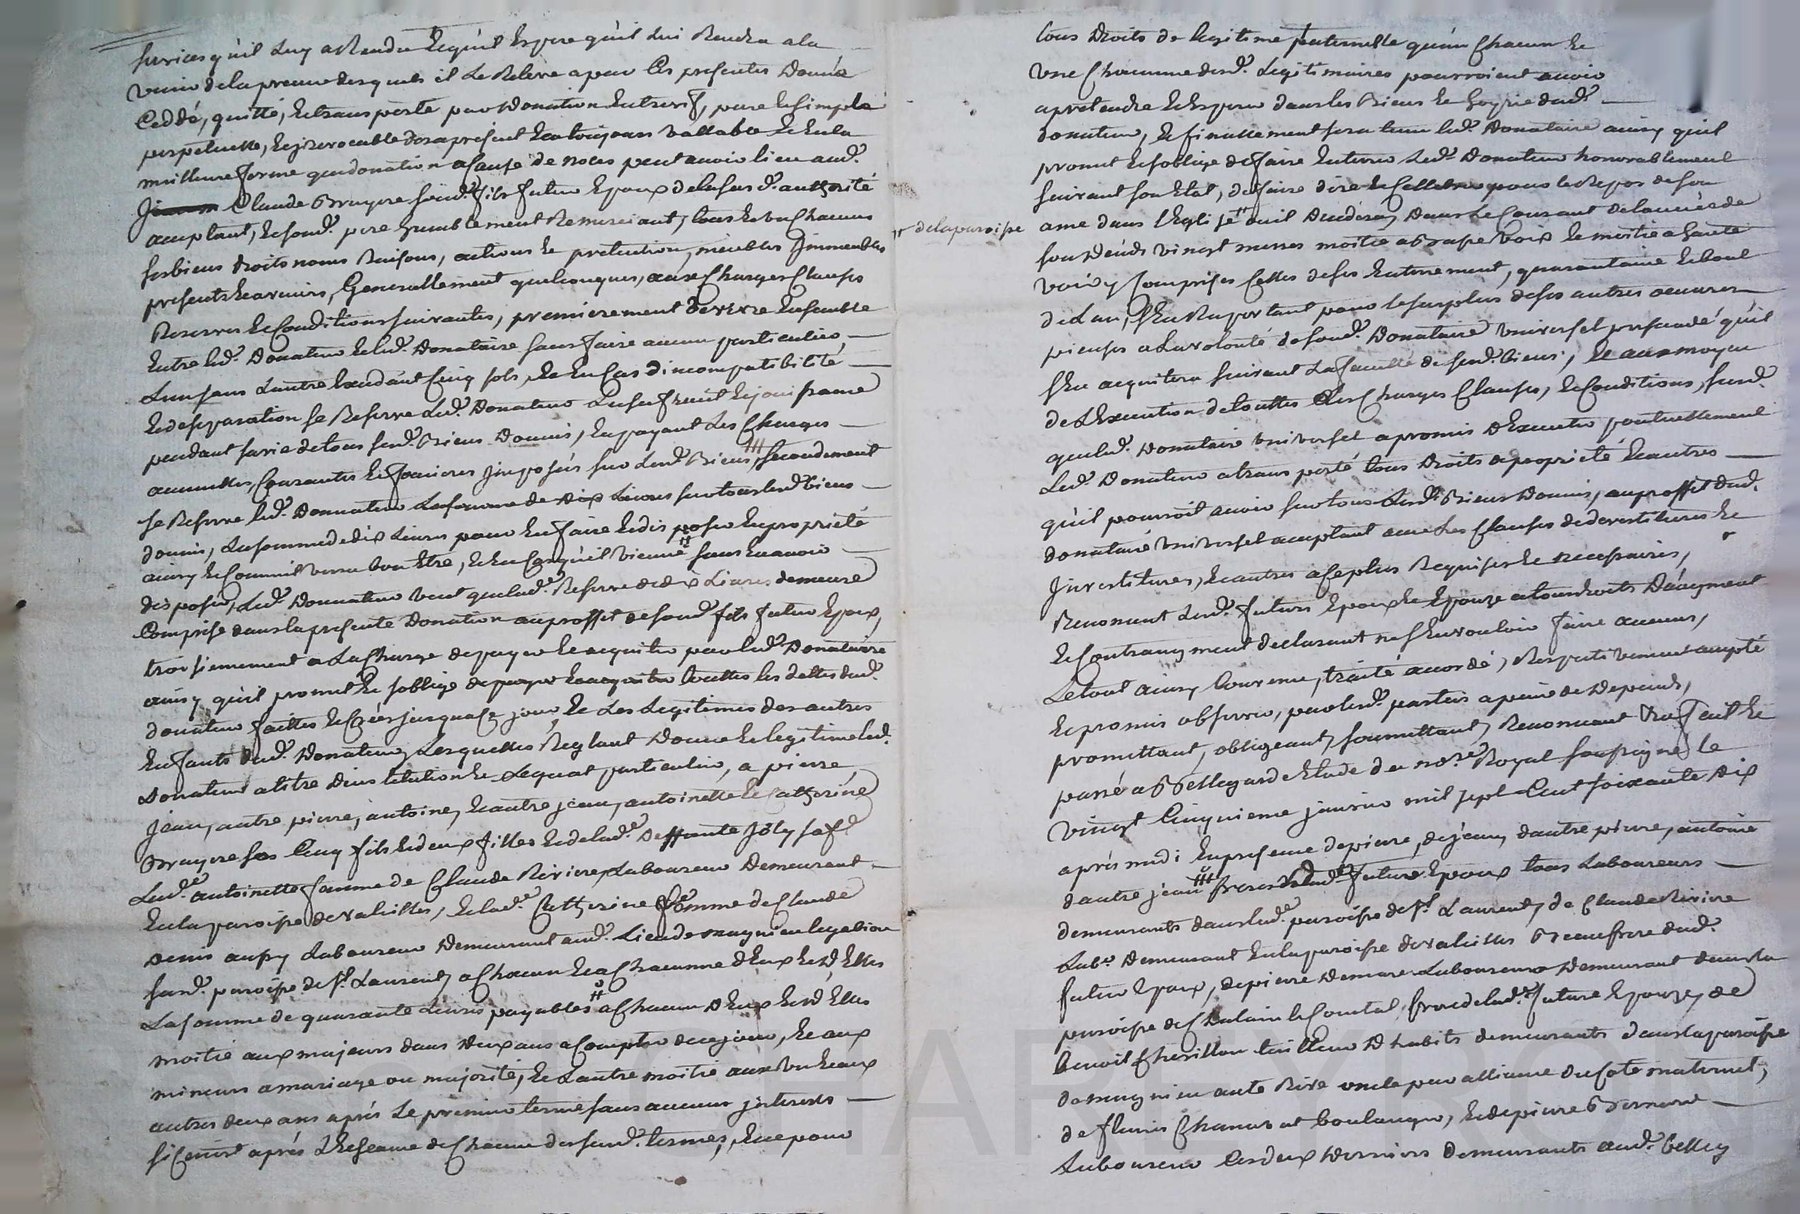 services qu'il luy a Rendu Et qu'il Espere qu'il lui Rendra a la
preuve desquels il Le Releve a par Ces presentes Donné
Ceddé, quitté, Et transporté par Donation Entrevifs, pure Et simple
perpetuelle, Et irrevocable dors a present Et a toujours vallable Et En la
meilleure forme que donation a Cause de noces peut avoir lieu aud.
Claude Bruyere sond. fils futur Epoux de lui susd. authorité
acceptant, Et sond. pere humblement Remerciant, tous Et un Chacuns
ses biens droits noms Raisons, actions Et pretentions, meubles Immeubles
presents Et avenirs, Generallement quelconques, aux Charges Clauses
Reserves Et Conditions suivantes, premierement de vivre Ensemble
Entre led. Donateur Et led. Donataire sans faire aucun particulier,
L'un sans L'autre Excedant Cinq sols, Et En Cas d'incompatibilité
Et de separation se Reserve Led. Donateur L'usufruit Et jouissance
pendant sa vie de tous sesd. Biens Donnés, En payant Les Charges
annuelles, Courantes Et foncieres Imposées sur Lesd. Biens, secondement
se Reserve led. Donnateur La somme de dix Livres sur tous lesd. biens
donnés, La somme de dix Livres pour En faire Et disposer En proprieté
ainsy Et Comme il verra bon Etre, Et En Cas qu'il vienne sans En avoir
disposé, Led. Donnateur veut que lad. Reserve de dix Livres demeure
Comprise dans la presente Donation au proffit de sond. fils futur Epoux,
troisiemement a La Charge de payer Et acquiter par led. Donataire
ainsy qu'il promet Et s'obblige de payer Et acquiter touttes les dettes dud.
donateur faittes Et Créés jusqu'a Ce jour, Et Les Legitimes des autres
Enfants dud. Donateur, Lesquelles Reglant Donne Et legitime led.
Donateur a titre D'institution Et Legat particulier, a pierre
Jean, autre pierre, antoine, Et autre jean, antoinette Et Catherine
Bruyere ses Cinq fils Et deux filles Et de lad. Deffunte Joly sa f.
Lad. antoinette femme de Claude Riviere Laboureur Demeurant
En la paroisse de valeilles, Et lad. Catherine femme de Claude
Denis aussy Laboureur Demeurant aud. Lieu de magnieu
susd. paroisse de St. Laurent, a Chacun Et a Chacunne D'Eux Et D'Elles
La somme de quarante Livres payables a Chacun D'Eux Et D'Elles
moitié aux majeurs dans deux ans a Compter de ce jour, Et aux
mineurs a mariage ou majorité, Et L'autre moitié aux uns Et aux
autres deux ans aprés Le premier terme sans aucuns jnterets
si Ce n'est aprés L'Echeance de Chacun desusd. termes, Et ce pour
tous Droits de legitime paternelle qu'un Chacun Et
une Chacunne desd. Legitimaires pourroient avoir
a pretendre Et Esperer dans les Biens Et hoyrie dud.
donateur, Et finallement sera tenu led. Donataire ainsy qu'il
promet Et s'obblige de faire Enterrer Led. Donateur honorablement
suivant son Etat, de faire dire Et Celebrer pour le Repos de son
de la paroisse
ame dans l'Eglise ou il Decédera, Dans Le Courant de l'année de
son Déceds vingt messes moitié a Basse voix Et moitié a haute
voix, y Comprises Celles de ses Enterrement, quarantaine Et bout
de L'an, s'En Raportant pour le surplus de ses autres oeuvres
pieuses a La volonté de sond. Donataire universel persuadé qu'il
s'En acquitera suivant La faculté de sesd. biens, Et au moyen
de L'Execution de touttes Les Charges Clauses, Et Conditions, susd.
que led. Donataire universel a promis D'Executer pontuellement
Led. Donateur a transporté tous Droits de proprieté Et autres
qu'il pourroit avoir sur tous Lesd. Biens Donnés, au proffit dud.
donataire universel acceptant avec Les Clauses de devestitures Et
Investitures, Et autres a Ce plus Requises Et necessaires,
Renoncent Lesd. futurs Epoux Et Epouze a tous droits D'augment
Et Contraugment declarant ne s'En vouloir faire aucuns,
Le tout ainsy Convenu, traité accordé, Respectivement accepté
Et promis observer, par lesd. parties a peine de Depends,
promettant, obligeant, soumettant, Renonçant Fait Et
passé a Bellegarde Etude du no.re Royal soussigné Le
vingt Cinquieme janvier mil sept Cent soixante Dix
aprés midi En presence de pierre, de jean, d'autre pierre, antoine
d'autre jean freres dud. futur Epoux tous Laboureurs
demeurants dans lad. paroisse de St. Laurent, de Claude Riviere
Lab.r Demeurant En la paroisse de valeilles Beaufrere dud.
futur Epoux, de pierre Demare Laboureur Demeurant dans la
paroisse de Chalain le Comtal, frere de lad. future Epouze, de
Benoit tailleur D'habits demeurants dans la paroisse
de magnieu haute Rive oncle par alliance du Coté maternel,
de fleuris Boulanger, Et de pierre Bernard
Laboureur Ces deux Derniers demeurants aud. Belleg